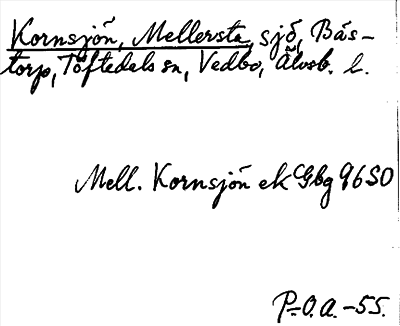 Kornsjön, Mellersta, sjö, Bäs-
torp, Töftedals sn, Vedbo, Älvsb. l.
Mell. Kornsjön ek Gbg 96SO
P-O.A.-55.